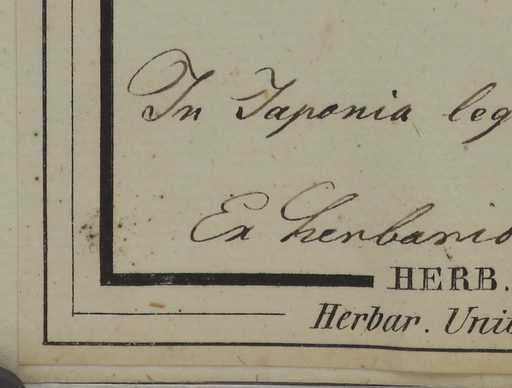 In Japonia leg
Ex herbario
HERB.
Herbar. Unit